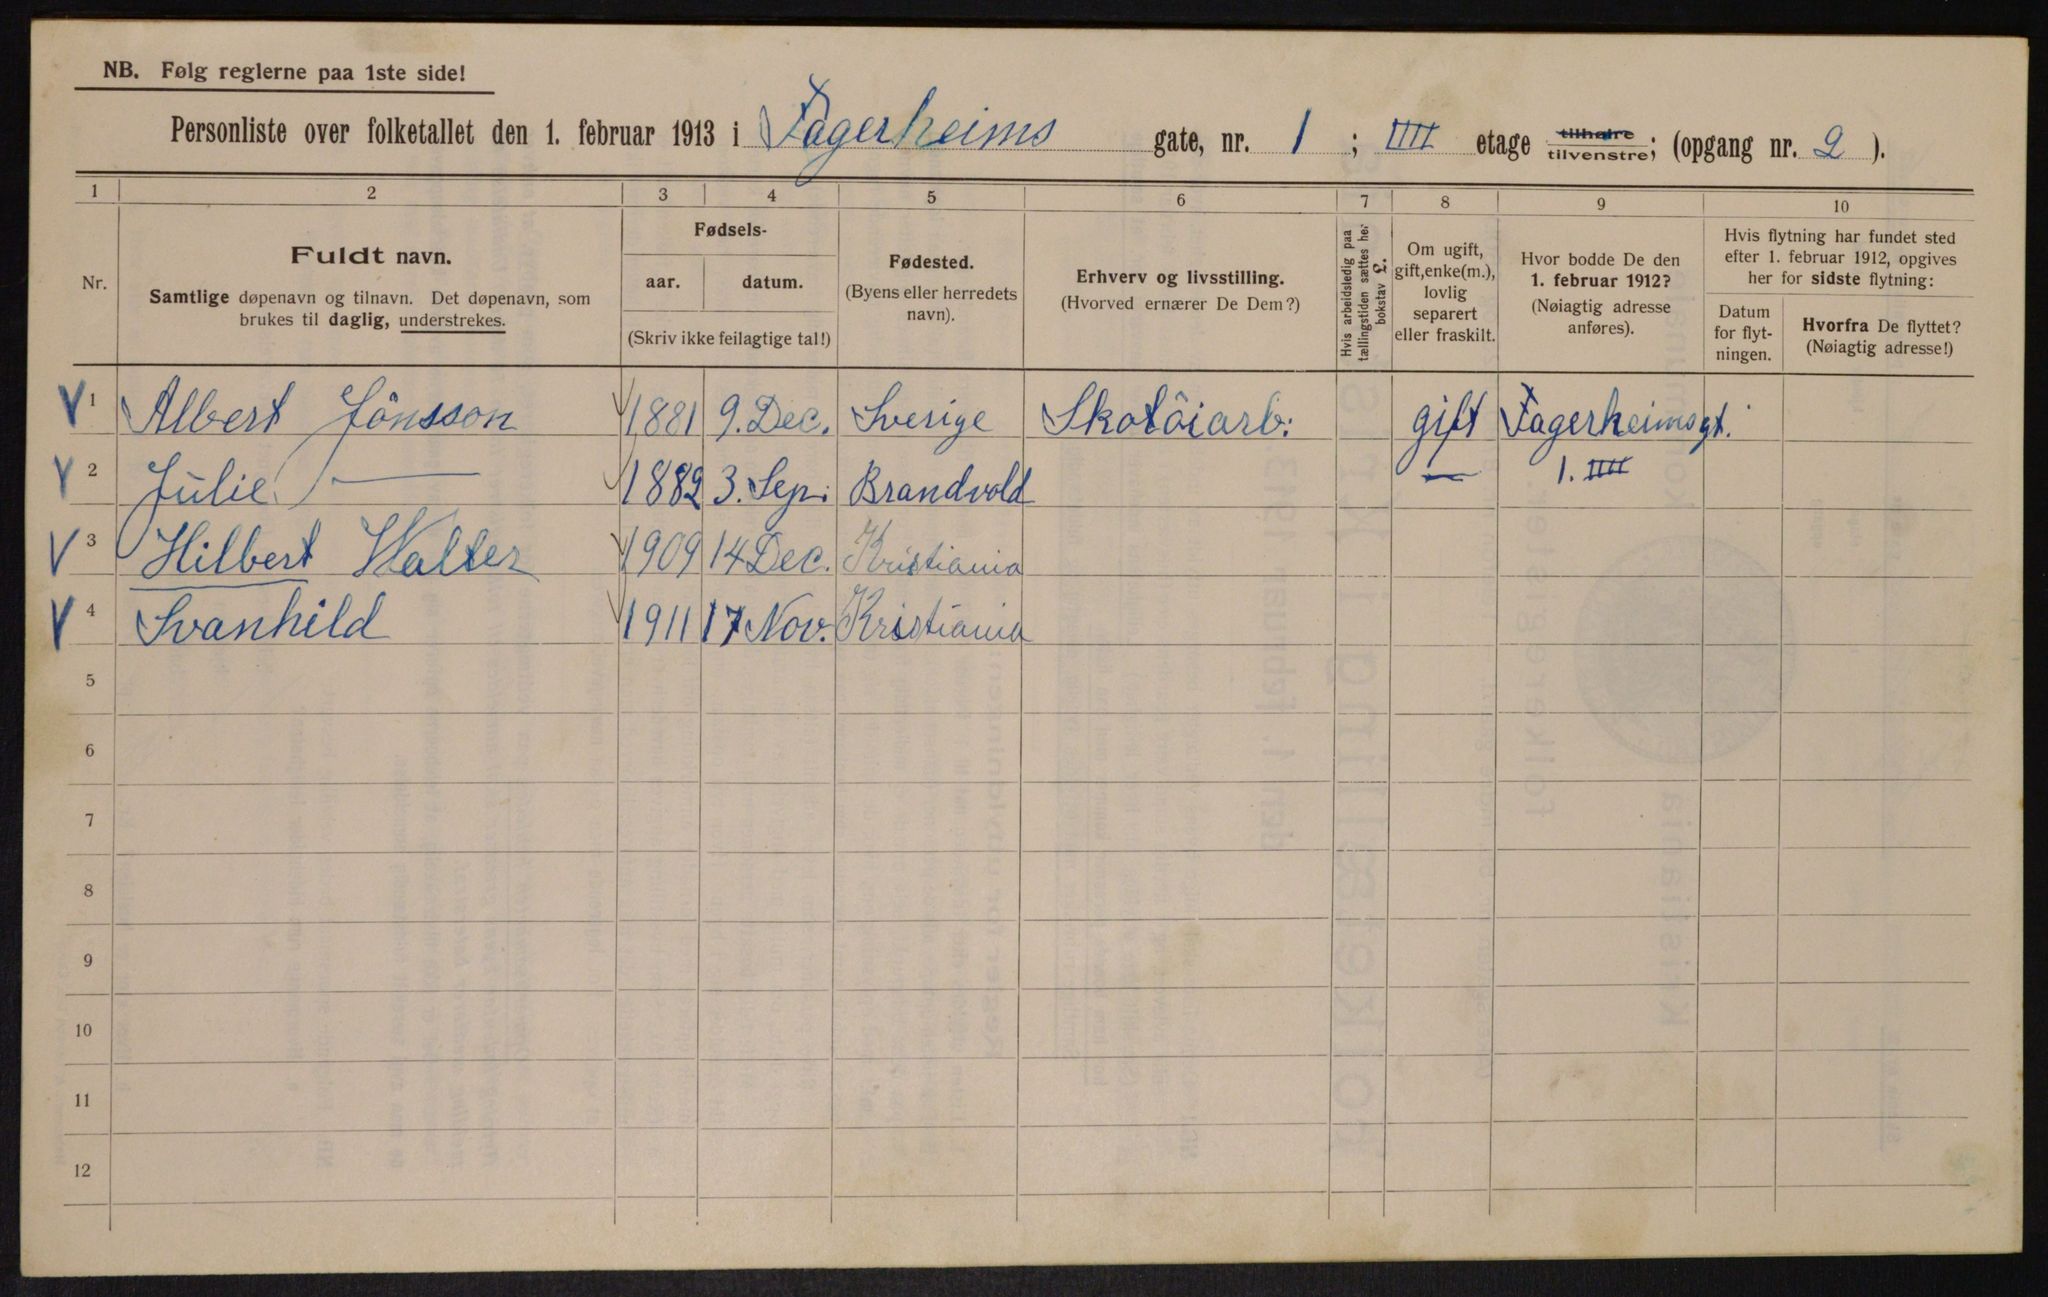 NB. Følg reglerne paa 1ste side!
Personliste over folketallet den 1. februar 1913 i Fagerheims gate, nr. 1 ; IIII etage tilhøire tilvenstre; (opgang nr. 2 ).
1 2 3 4 5 6 7 8 9 10
Nr.
Fuldt navn.
Samtlige døpenavn og tilnavn. Det døpenavn, som
brukes til daglig, understrekes.
Fødsels-
aar. datum.
(Skriv ikke feilagtige tal!)
Fødested.
(Byens eller herredets
navn).
Erhverv og livsstilling.
(Hvorved ernærer De Dem?)
Hvis arbeidsledig paa
tællingstiden sættes her
bokstav L.
Om ugift,
gift, enke(m.),
lovlig
separert
eller fraskilt.
Hvor bodde De den
1. februar 1912?
(Nøiagtig adresse
anføres).
Hvis flytning har fundet sted
efter 1. februar 1912, opgives
her for sidste flytning:
Datum
for flyt-
ningen.
Hvorfra De flyttet?
(Nøiagtig adresse!)
V 1 Albert Jönsson 1881 9. Dec. Sverige Skotöiarb: gift Fagerheimsgt.
V 2 Julie — 1882 3. Sep. Brandvold — 1. IIII
V 3 Hilbert Walter 1909 14 Dec. Kristiania
V 4 Svanhild 1911 17 Nov. Kristiania
5
6
7
8
9
10
11
12